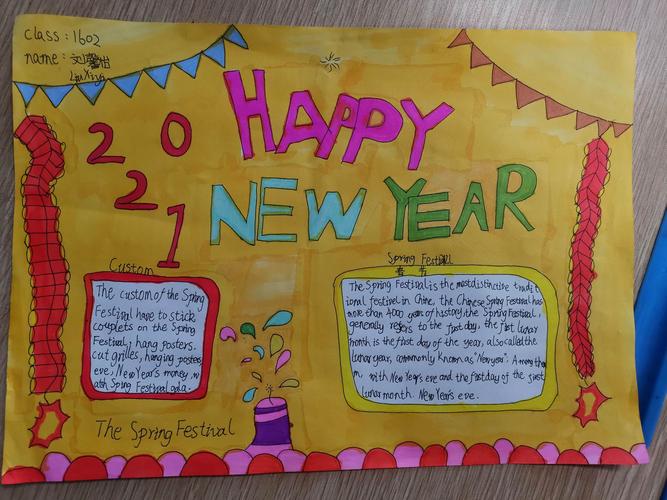 class : 1602
name : 刘馨怡
Liu Xinyi
2021
HAPPY
NEW YEAR
Custom
The custom of the Spring
Festival have to stick
couplets on the Spring
Festival, hang posters.
cut grilles, hanging posters
eve, New Year's money, w
atch Spring Festival gala.
Spring Festival
春 节
The Spring Festival is the most distinctive tradit
ional festival in China, the Chinese Spring Festival has
more than 4000 years of history, the Spring Festival,
generally refers to the first day, the first lunar
month is the first day of the year, also called the
lunar year, commonly known as "New year". Among the
m, with New Year's eve and the first day of the first
lunar month. New Year's eve.
The Spring Festival